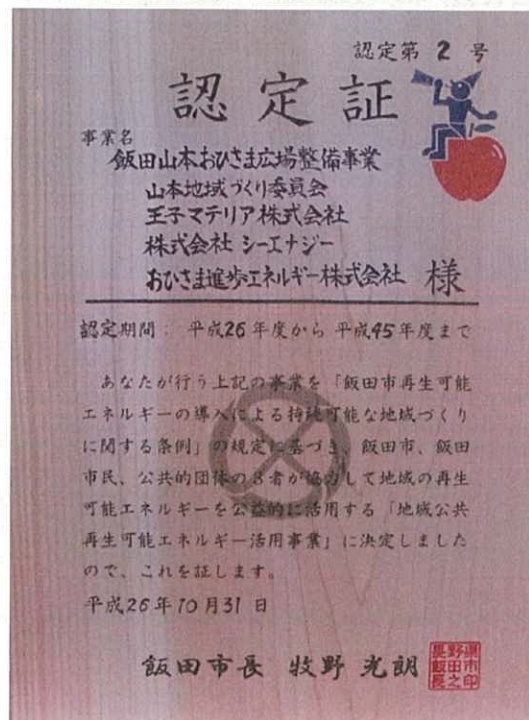 認定第2号
認定証
事業名
飯田山本おひさま広場整備事業
山本地域づくり委員会
王子マテリア株式会社
株式会社シーエナジー
おひさま進歩エネルギー株式会社 様
認定期間: 平成26年度から平成45年度まで
あなたが行う上記の事業を「飯田市再生可能
エネルギーの導入による持続可能な地域づくり
に関する条例」の規定に基づき、飯田市、飯田
市民、公共的団体の3者が協力して地域の再生
可能エネルギーを公益的に活用する「地域公共
再生可能エネルギー活用事業」に決定しました
ので、これを証します。
平成26年10月31日
飯田市長 牧野光朗
長野県飯田市長之印